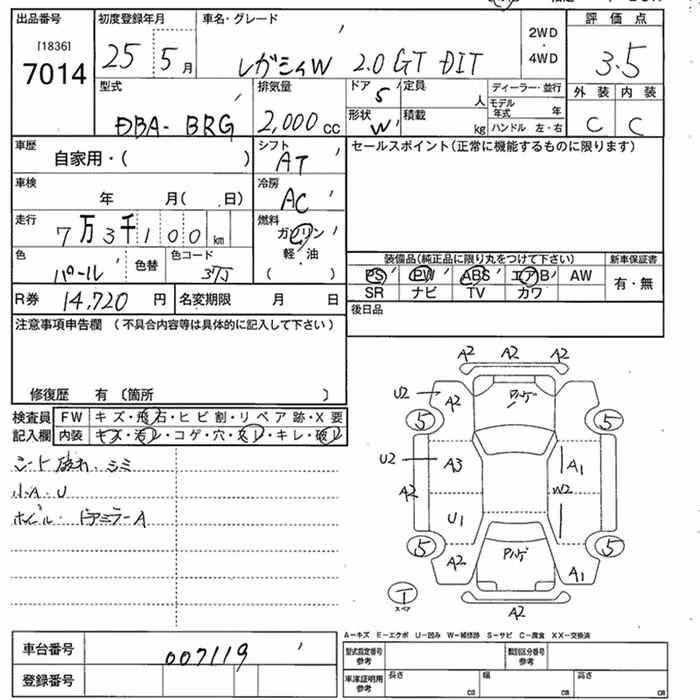 出品番号 初度登録年月 車名・グレード 評価点
[1836] 7014 25 5月 レガシィW 2.0 GT DIT 2WD・4WD 3.5
型式 排気量 ドア 定員 ディーラー・並行 外装 内装
DBA-BRG 2,000cc 5 人 モデル年式 年
形状 W 積載 kg ハンドル 左・右 C C
車歴 シフト セールスポイント(正常に機能するものに限ります)
自家用・( ) AT
車検 冷房
年 月( 日) AC
走行 燃料
7万3千100km ガソリン
色 色替 色コード 軽・油 装備品(純正品に限り丸をつけて下さい) 新車保証書
パール 37J ( ) PS PW ABS エアB AW 有・無
R券 14,720円 名変期限 月 日 SR ナビ TV カワ
注意事項申告欄(不具合内容等は具体的に記入して下さい) 後日品
修復歴 有〔箇所 〕
検査員 FW キズ・飛石・ヒビ割・リペア跡・X要
記入欄 内装 キズ・汚レ・コゲ・穴・スレ・キレ・破レ
シート破れ・シミ
小A・U
ホイール・ドアミラーA
A2 A2 A2
U2 A2
5 5
U2 A3 A1
A2 W2
U1
5 5
A2 A1
T
スペア
A2
A-キズ E-エクボ U-凹み W-補修跡 S-サビ C-腐食 XX-交換済
車台番号 007119 型式指定番号 参考 類別区分番号 参考
登録番号 車庫証明用 参考 長さ cm 幅 cm 高さ cm